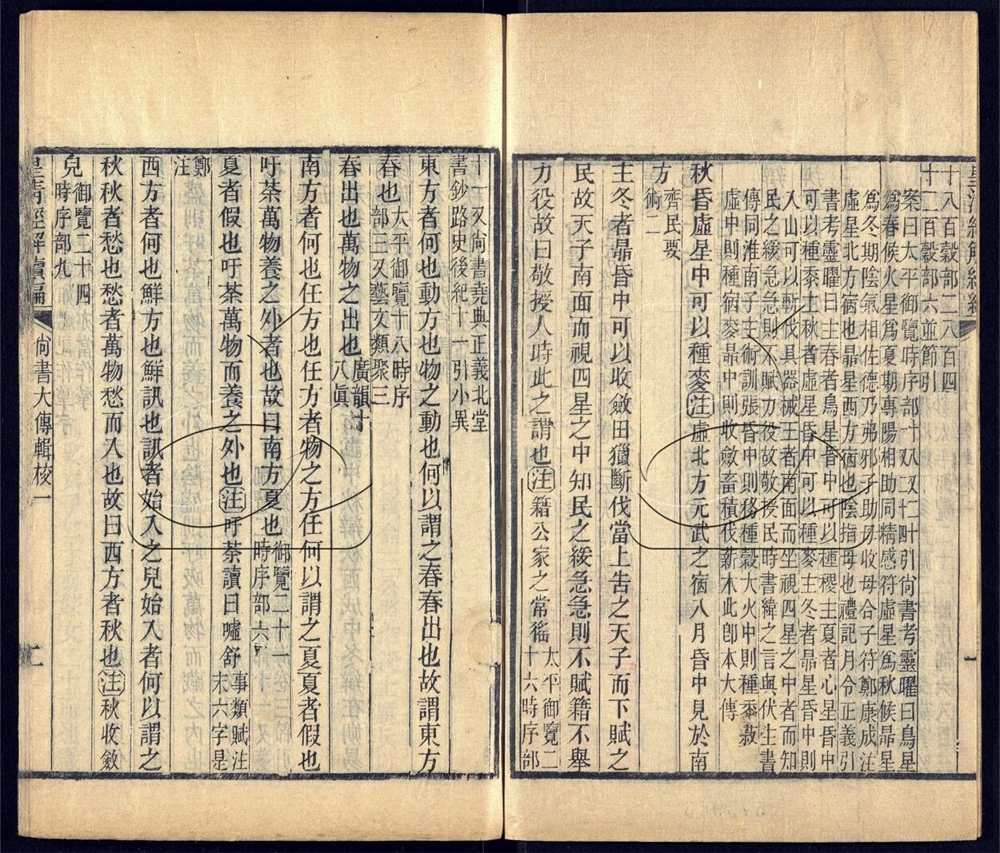 十八百穀部二八百四
十二百穀部六並節引
案曰太平御覽時序部十八又二十四引尚書考靈曜曰鳥星
爲春候火星爲夏期專陽相助同精感符虛星爲秋候昴星
爲冬期陰氣相佐德乃弗邪子助母收母合子符鄭康成注
虛星北方宿也昴星西方宿也陰指母也禮記月令正義引
書考靈曜曰主春者鳥星昏中可以種稷主夏者心星昏中
可以種黍主秋者虛星昏中可以種麥主冬者昴星昏中則
入山可以斬伐具器械王者南面而坐視四星之中者而知
民之緩急急則不賦力役故敬授民時書緯之言與伏生書
傳同淮南子主術訓張昏中則務種穀大火中則種黍菽
虛中則種宿麥昴中則收斂畜積伐薪木此卽本大傳
秋昏虛星中可以種麥注虛北方元武之宿八月昏中見於南
方
齊民要
術二
主冬者昴昏中可以收斂田獵斷伐當上告之天子而下賦之
民故天子南面而視四星之中知民之緩急急則不賦籍不舉
力役故曰敬授人時此之謂也注籍公家之常徭
太平御覽二
十六時序部
十一又尚書堯典正義北堂
書鈔路史後紀十一引小異
東方者何也動方也物之動也何以謂之春春出也故謂東方
春也
太平御覽十八時序
部三又藝文類聚三
春出也萬物之出也
廣韻十
八眞
南方者何也任方也任方者物之方任何以謂之夏夏者假也
吁荼萬物養之外者也故曰南方夏也
御覽二十一
時序部六
夏者假也吁荼萬物而養之外也注吁荼讀曰噓舒
事類賦注
末六字是
鄭
注
西方者何也鮮方也鮮訊也訊者始入之皃始入者何以謂之
秋秋者愁也愁者萬物愁而入也故曰西方者秋也注秋收斂
皃
御覽二十四
時序部九
皇清經解續編
尙書大傳輯校一